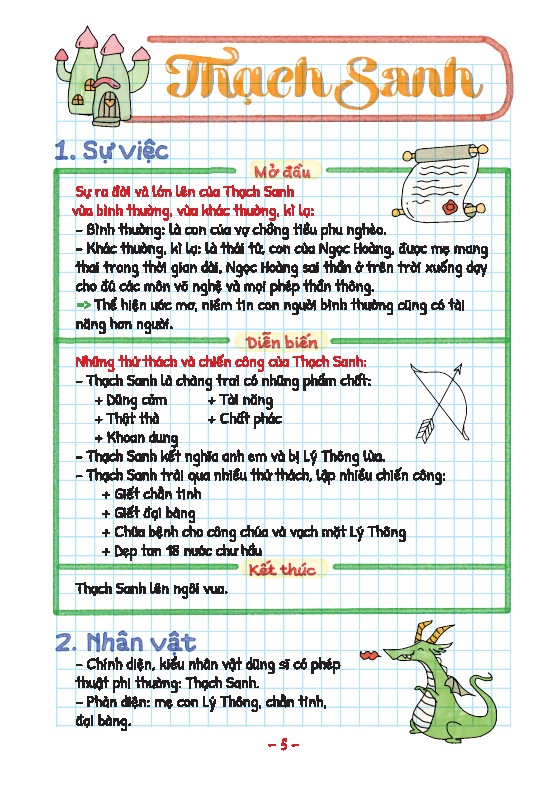 Thạch Sanh
1. Sự việc
Mở đầu
Sự ra đời và lớn lên của Thạch Sanh
vừa bình thường, vừa khác thường, kì lạ:
– Bình thường: là con của vợ chồng tiều phu nghèo.
– Khác thường, kì lạ: là thái tử, con của Ngọc Hoàng, được mẹ mang
thai trong thời gian dài, Ngọc Hoàng sai thần ở trên trời xuống dạy
cho đủ các môn võ nghệ và mọi phép thần thông.
=> Thể hiện ước mơ, niềm tin con người bình thường cũng có tài
năng hơn người.
Diễn biến
Những thử thách và chiến công của Thạch Sanh:
– Thạch Sanh là chàng trai có những phẩm chất:
+ Dũng cảm + Tài năng
+ Thật thà + Chất phác
+ Khoan dung
– Thạch Sanh kết nghĩa anh em và bị Lý Thông lừa.
– Thạch Sanh trải qua nhiều thử thách, lập nhiều chiến công:
+ Giết chằn tinh
+ Giết đại bàng
+ Chữa bệnh cho công chúa và vạch mặt Lý Thông
+ Dẹp tan 18 nước chư hầu
Kết thúc
Thạch Sanh lên ngôi vua.
2. Nhân vật
– Chính diện, kiểu nhân vật dũng sĩ có phép
thuật phi thường: Thạch Sanh.
– Phản diện: mẹ con Lý Thông, chằn tinh,
đại bàng.
– 5 –